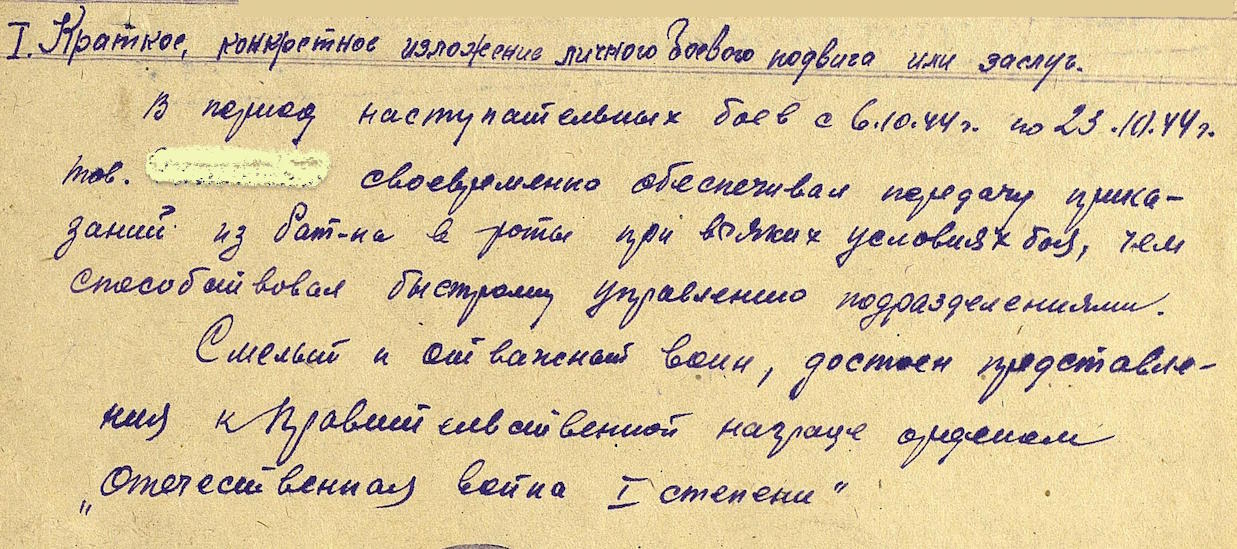 I. Краткое, конкретное изложение личного боевого подвига или заслуг.
В период наступательных боев с 6.10.44 г. по 23.10.44 г.
тов. своевременно обеспечивал передачу прика-
заний из бат-на в роты при всяких условиях боя, чем
способствовал быстрому управлению подразделениями.
Смелый и отважный воин, достоен представле-
ния к Правительственной награде орденом
„Отечественная война I степени"